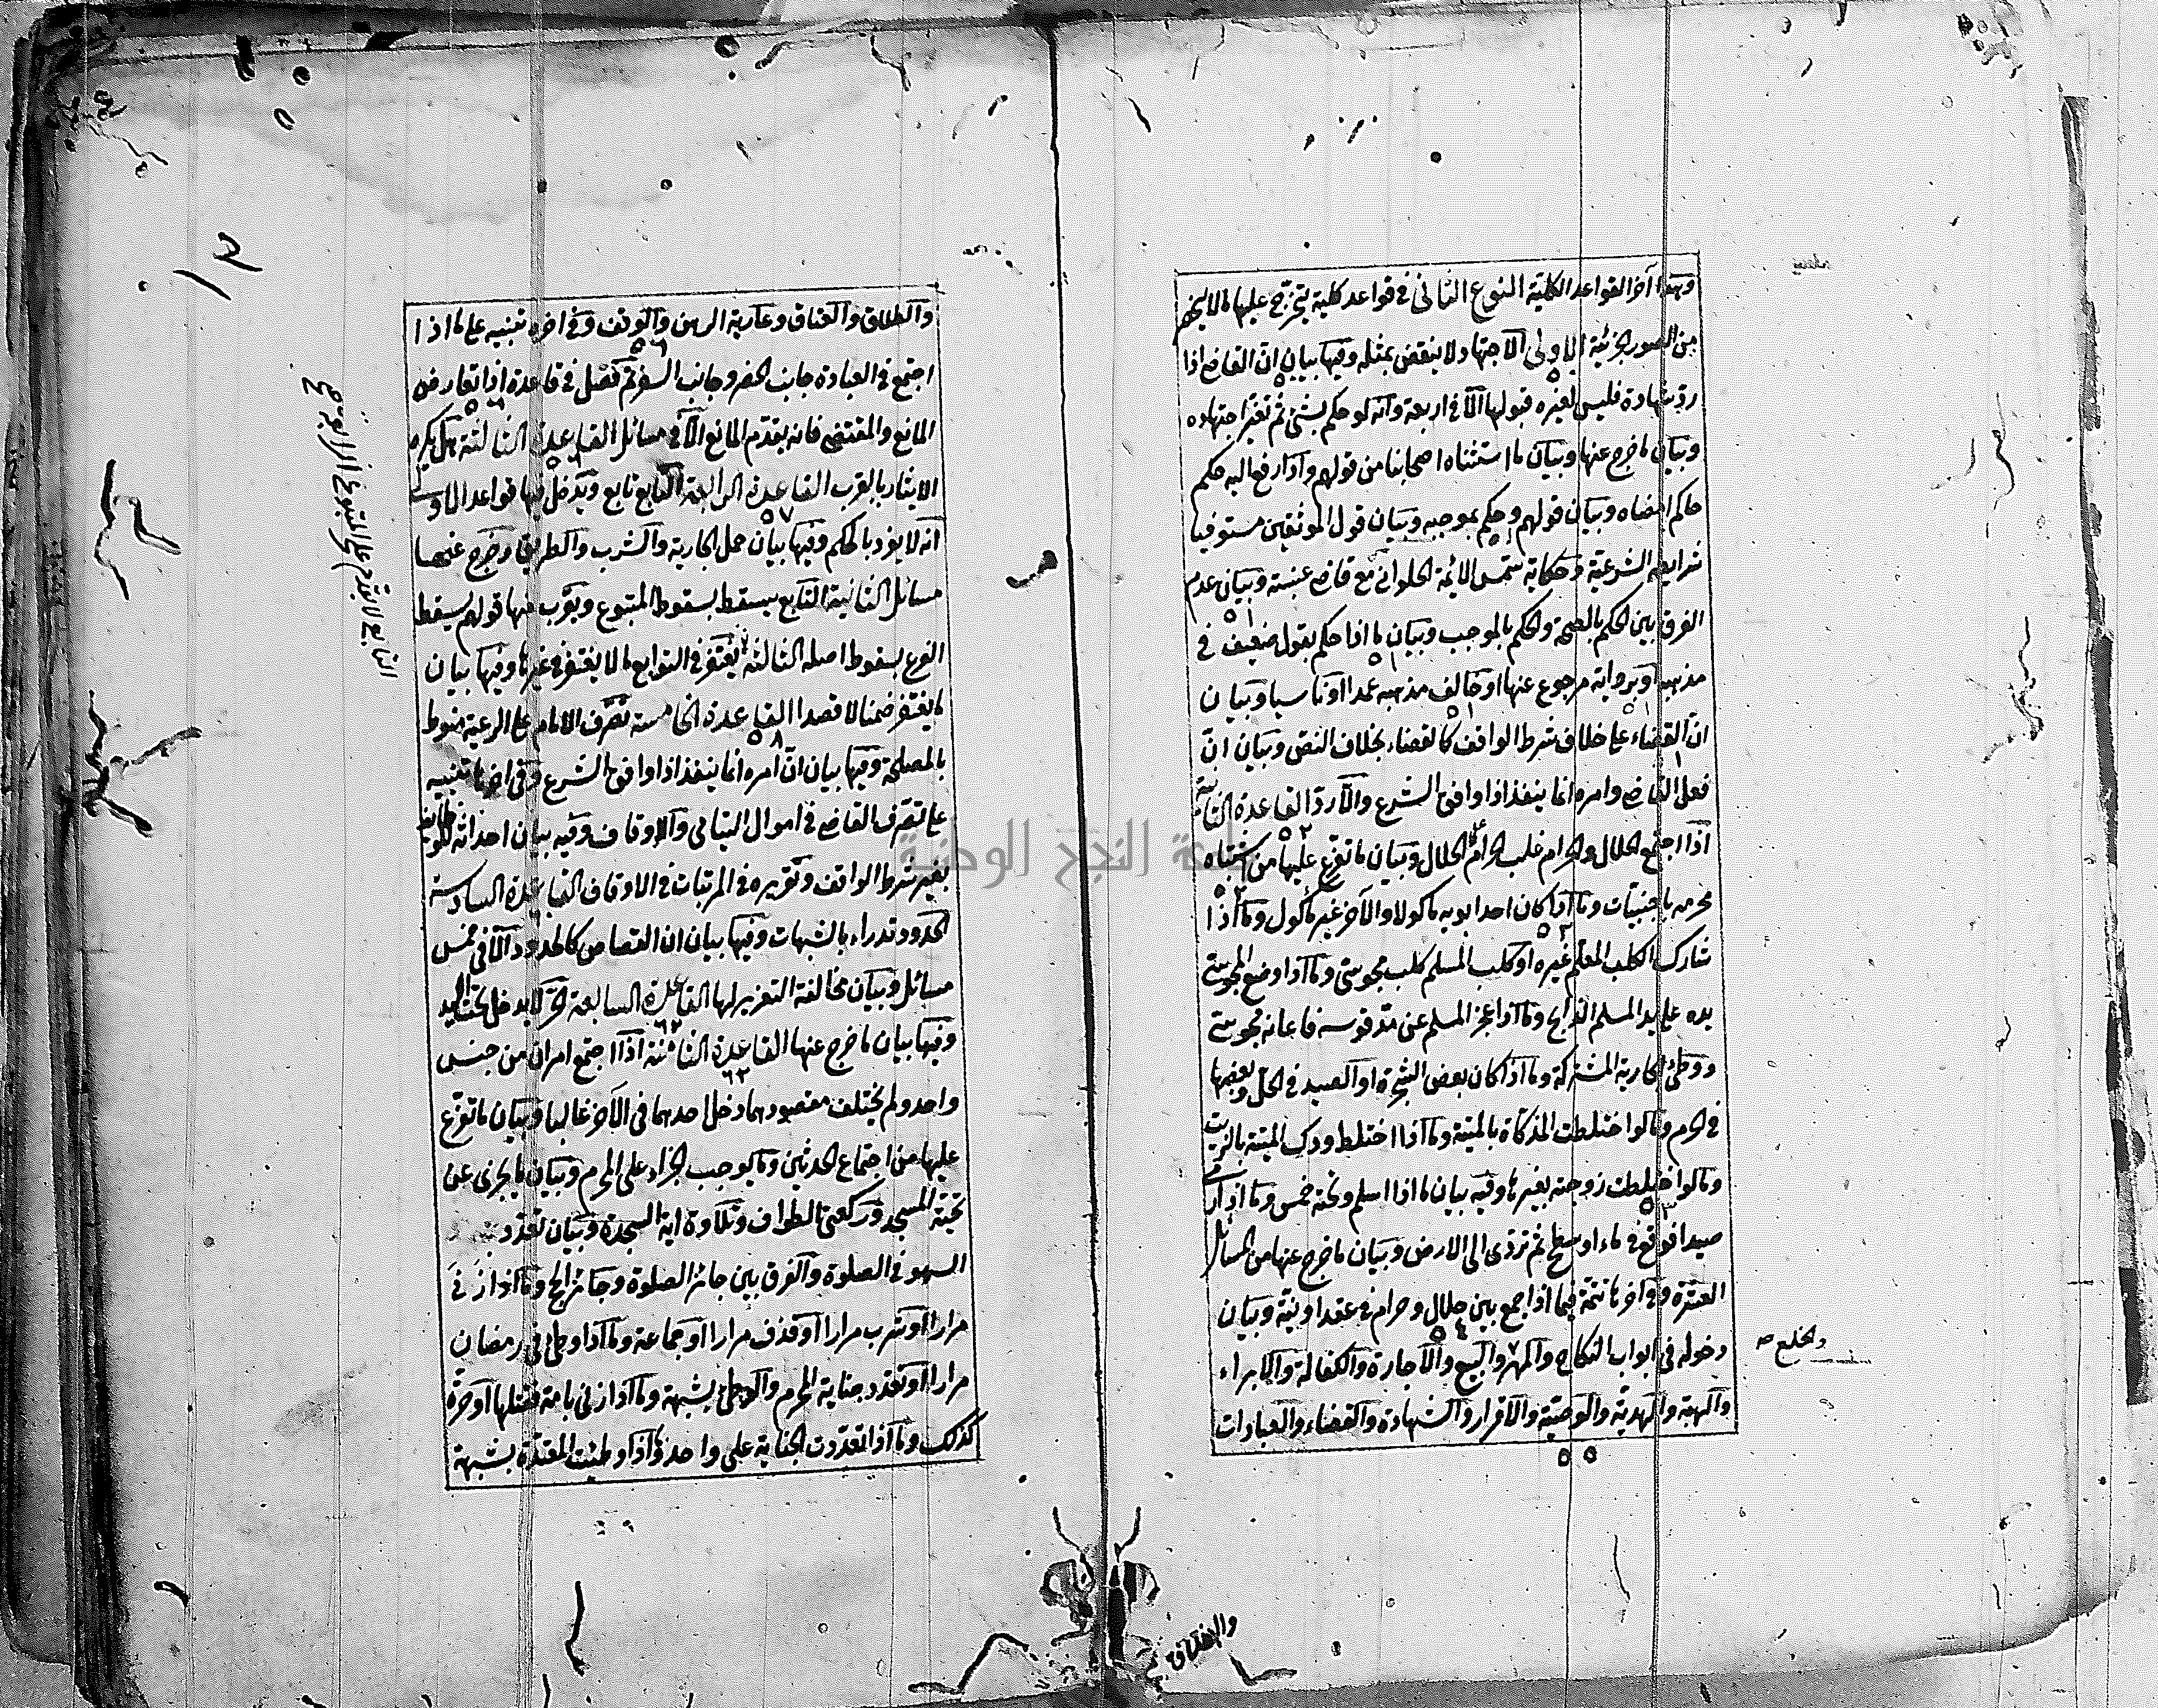 وهذا آخر القواعد الكلية النوع الثاني في قواعد كلية يتخرج عليها ما لا ينحصر
من الصور الجزئية الاولى الاجتهاد لا ينقض بمثله وفيها بيان ان القاضي اذا
رد شهادة فليس لغيره قبولها الا في اربعة وانه لو حكم بشئ ثم تغير اجتهاده
وبيان ما خرج عنها وبيان ما استثناه اصحابنا من قولهم واذا رفع اليه حكم
حاكم امضاه وبيان قولهم وحكم بموجبه وبيان قول الموثقين مستوفيا
شرايطه الشرعية وحكاية شمس الائمة الحلواني مع قاضي عنبسة وبيان عدم
الفرق بين الحكم بالصحة والحكم بالموجب وبيان ما اذا حكم بقول ضعيف في
مذهبه او برواية مرجوع عنها او خالف مذهبه عمدا او ناسيا وبيان
ان القضاء على خلاف شرط الواقف كالقضاء بخلاف النص وبيان ان
فعل القاضي وامره انما ينفذ اذا وافق الشرع والا رد القاعدة الثانية
اذا اجتمع الحلال والحرام غلب الحرام الحلال وبيان ما تفرع عليها من اشتباه
محرمه باجنبيات وما اذا كان احد ابويه مأكولا والآخر غير مأكول وما اذا
شارك الكلب المعلم غيره او كلب المسلم كلب مجوسي وما اذا وضع المجوسي
يده على يد المسلم الذابح وما اذا عجز المسلم عن مد قوسه فاعانه مجوسي
ووطئ الجارية المشتركة وما اذا كان بعض الشجرة او الصيد في الحل وبعضها
في الحرم وما لو اختلطت المذكاة بالميتة وما اذا اختلط ودك الميتة بالزيت
وما لو اختلطت زوجته بغيرها وفيه بيان ما اذا اسلم وتحته خمس وما اذا رمى
صيدا فوقع في ماء او سطح ثم تردى الى الارض وبيان ما خرج عنها من المسائل
العشرة وفي اخرها تتمة فيما اذا جمع بين حلال وحرام في عقد او نية وبيان
دخوله في ابواب النكاح والمهر والبيع والاجارة والكفالة والابراء
والخلع صح
والهبة والهدية والوصية والاقرار والشهادة والقضاء والعبادات
والطلاق
والطلاق والعتاق وعارية الرهن والوقف وفي اخره تنبيه على ما اذا
اجتمع في العبادة جانب الحضر وجانب السفر ثم فصل في قاعدة اذا تعارض
المانع والمقتضي فانه يقدم المانع الا في مسائل القاعدة الثالثة هل يكره
الايثار بالقرب القاعدة الرابعة التابع تابع ويدخل فيها قواعد الاولى
انه لا يفرد بالحكم وفيها بيان حمل الجارية والشرب والطريق وخرج عنها
مسائل الثانية التابع يسقط بسقوط المتبوع ويقرب منها قولهم يسقط
التابع لا يتقدم على المتبوع
الفرع بسقوط اصله الثالثة يغتفر في التوابع ما لا يغتفر في غيرها وفيها بيان
ما يغتفر ضمنا لا قصدا القاعدة الخامسة تصرف الامام على الرعية منوط
بالمصلحة وفيها بيان ان امره انما ينفذ اذا وافق الشرع وفي اخرها تنبيه
على تصرف القاضي في اموال اليتامى والاوقاف وفيه بيان احداثه للوظايف
بغير شرط الواقف وتقريره في المرتبات في الاوقاف القاعدة السادسة
الحدود تدراء بالشبهات وفيها بيان ان القصاص كالحدود الا في خمس
مسائل وبيان مخالفة التعزير لها القاعدة السابعة الحر لا يدخل تحت اليد
وفيها بيان ما خرج عنها القاعدة الثامنة اذا اجتمع امران من جنس
واحد ولم يختلف مقصودهما دخل احدهما في الآخر غالبا وبيان ما تفرع
عليها من اجتماع الحدثين وما يوجب الجزاء على المحرم وبيان ما يجزى عن
تحية المسجد وركعتي الطواف وتلاوة اية السجدة وبيان تعدد
السهو في الصلوة والفرق بين جابر الصلوة وجابر الحج وما اذا زنى
مرارا او شرب مرارا او قذف مرارا او جماعة وما اذا وطئ في رمضان
مرارا او تعدد جناية المحرم والوطئ بشبهة وما اذا زنى بامة فقتلها او حرة
كذلك وما اذا تعددت الجناية على واحد وما اذا وطئت المعتدة بشبهة
جامعة النجاح الوطنية